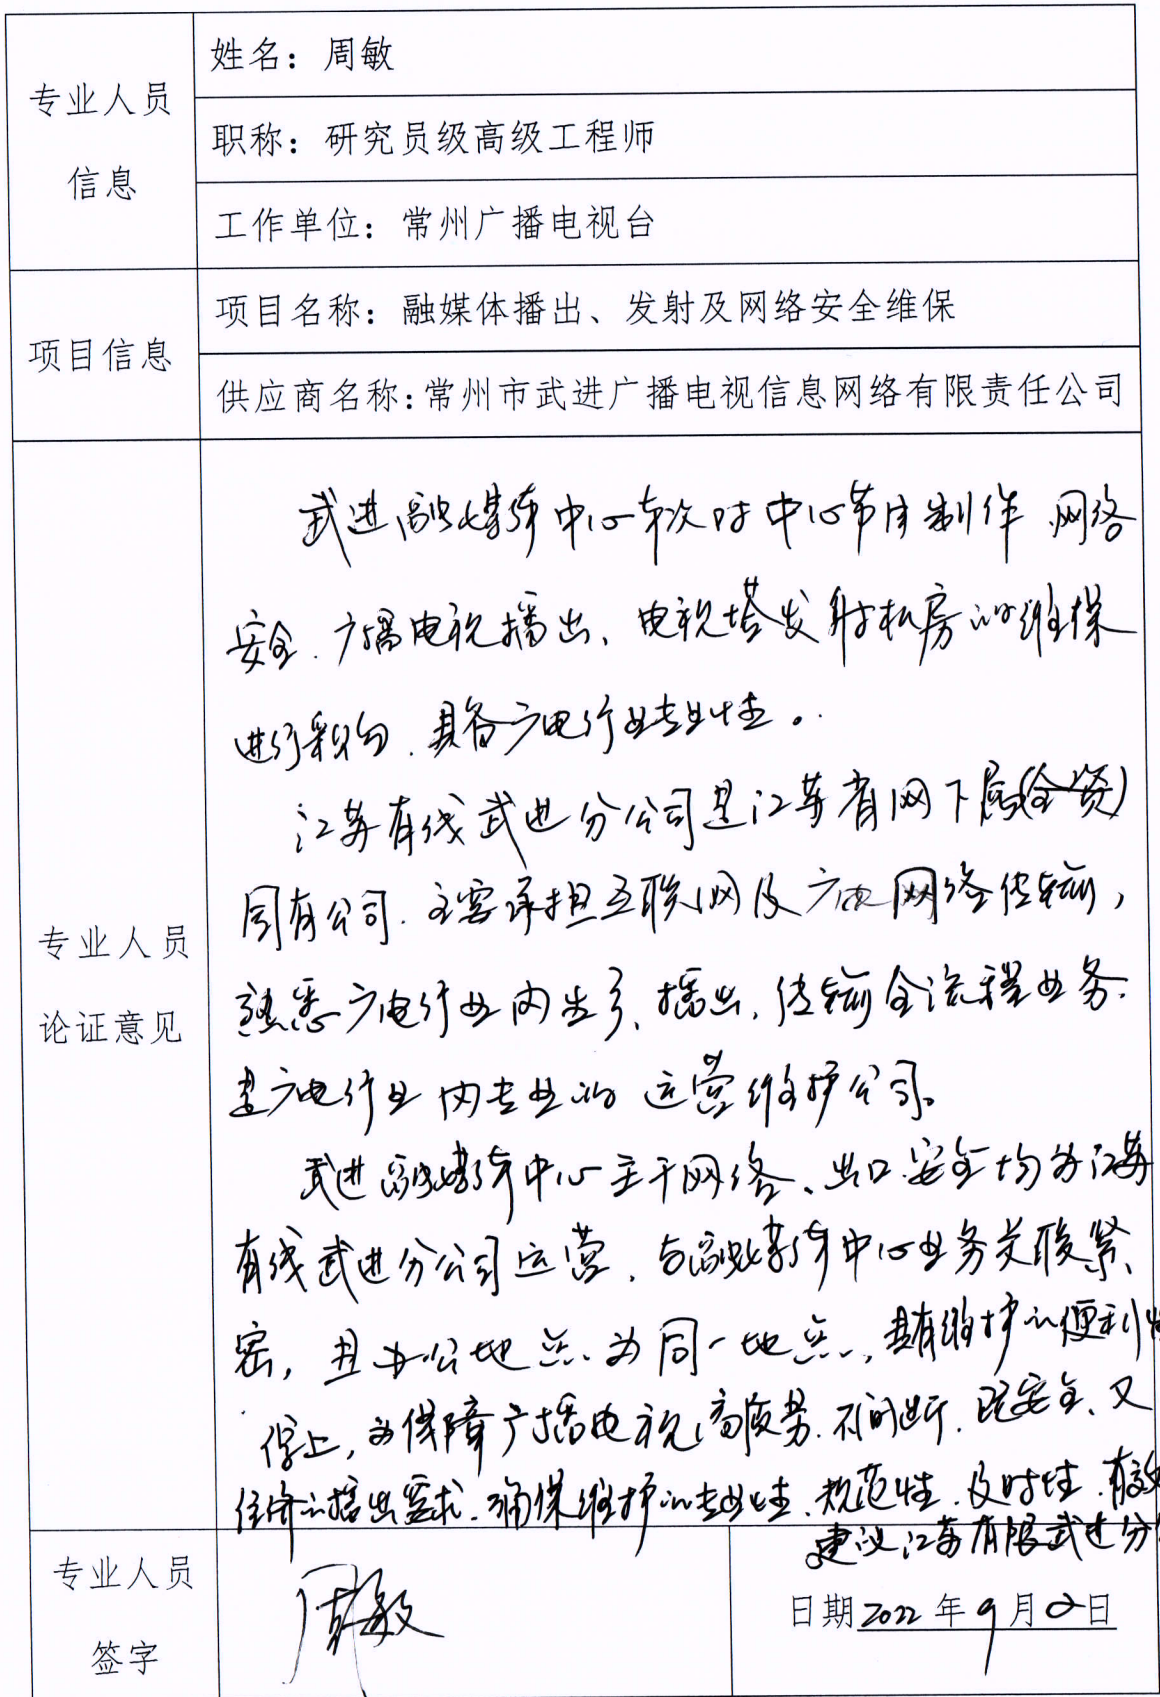 专业人员
信息
姓名：周敏
职称：研究员级高级工程师
工作单位：常州广播电视台
项目信息
项目名称：融媒体播出、发射及网络安全维保
供应商名称：常州市武进广播电视信息网络有限责任公司
专业人员
论证意见
武进融媒体中心本次对中心节目制作 网络
安全、广播电视播出、电视塔发射机房的维保
进行采购，具备广电行业专业性。
江苏有线武进分公司是江苏省网下属(全资)
国有公司，主要承担互联网及广电网络传输，
熟悉广电行业内生产、播出、传输全流程业务，
是广电行业内专业的运营维护公司。
武进融媒体中心主干网络、出口安全均为江苏
有线武进分公司运营，与融媒体中心业务关联紧
密，且办公地点为同一地点，具有维护的便利性
综上，为保障广播电视高质量、不间断、既安全、又
经济的播出需求，确保维护的专业性、规范性、及时性、有效
建议江苏有限武进分
专业人员
签字
周敏
日期2022年9月2日